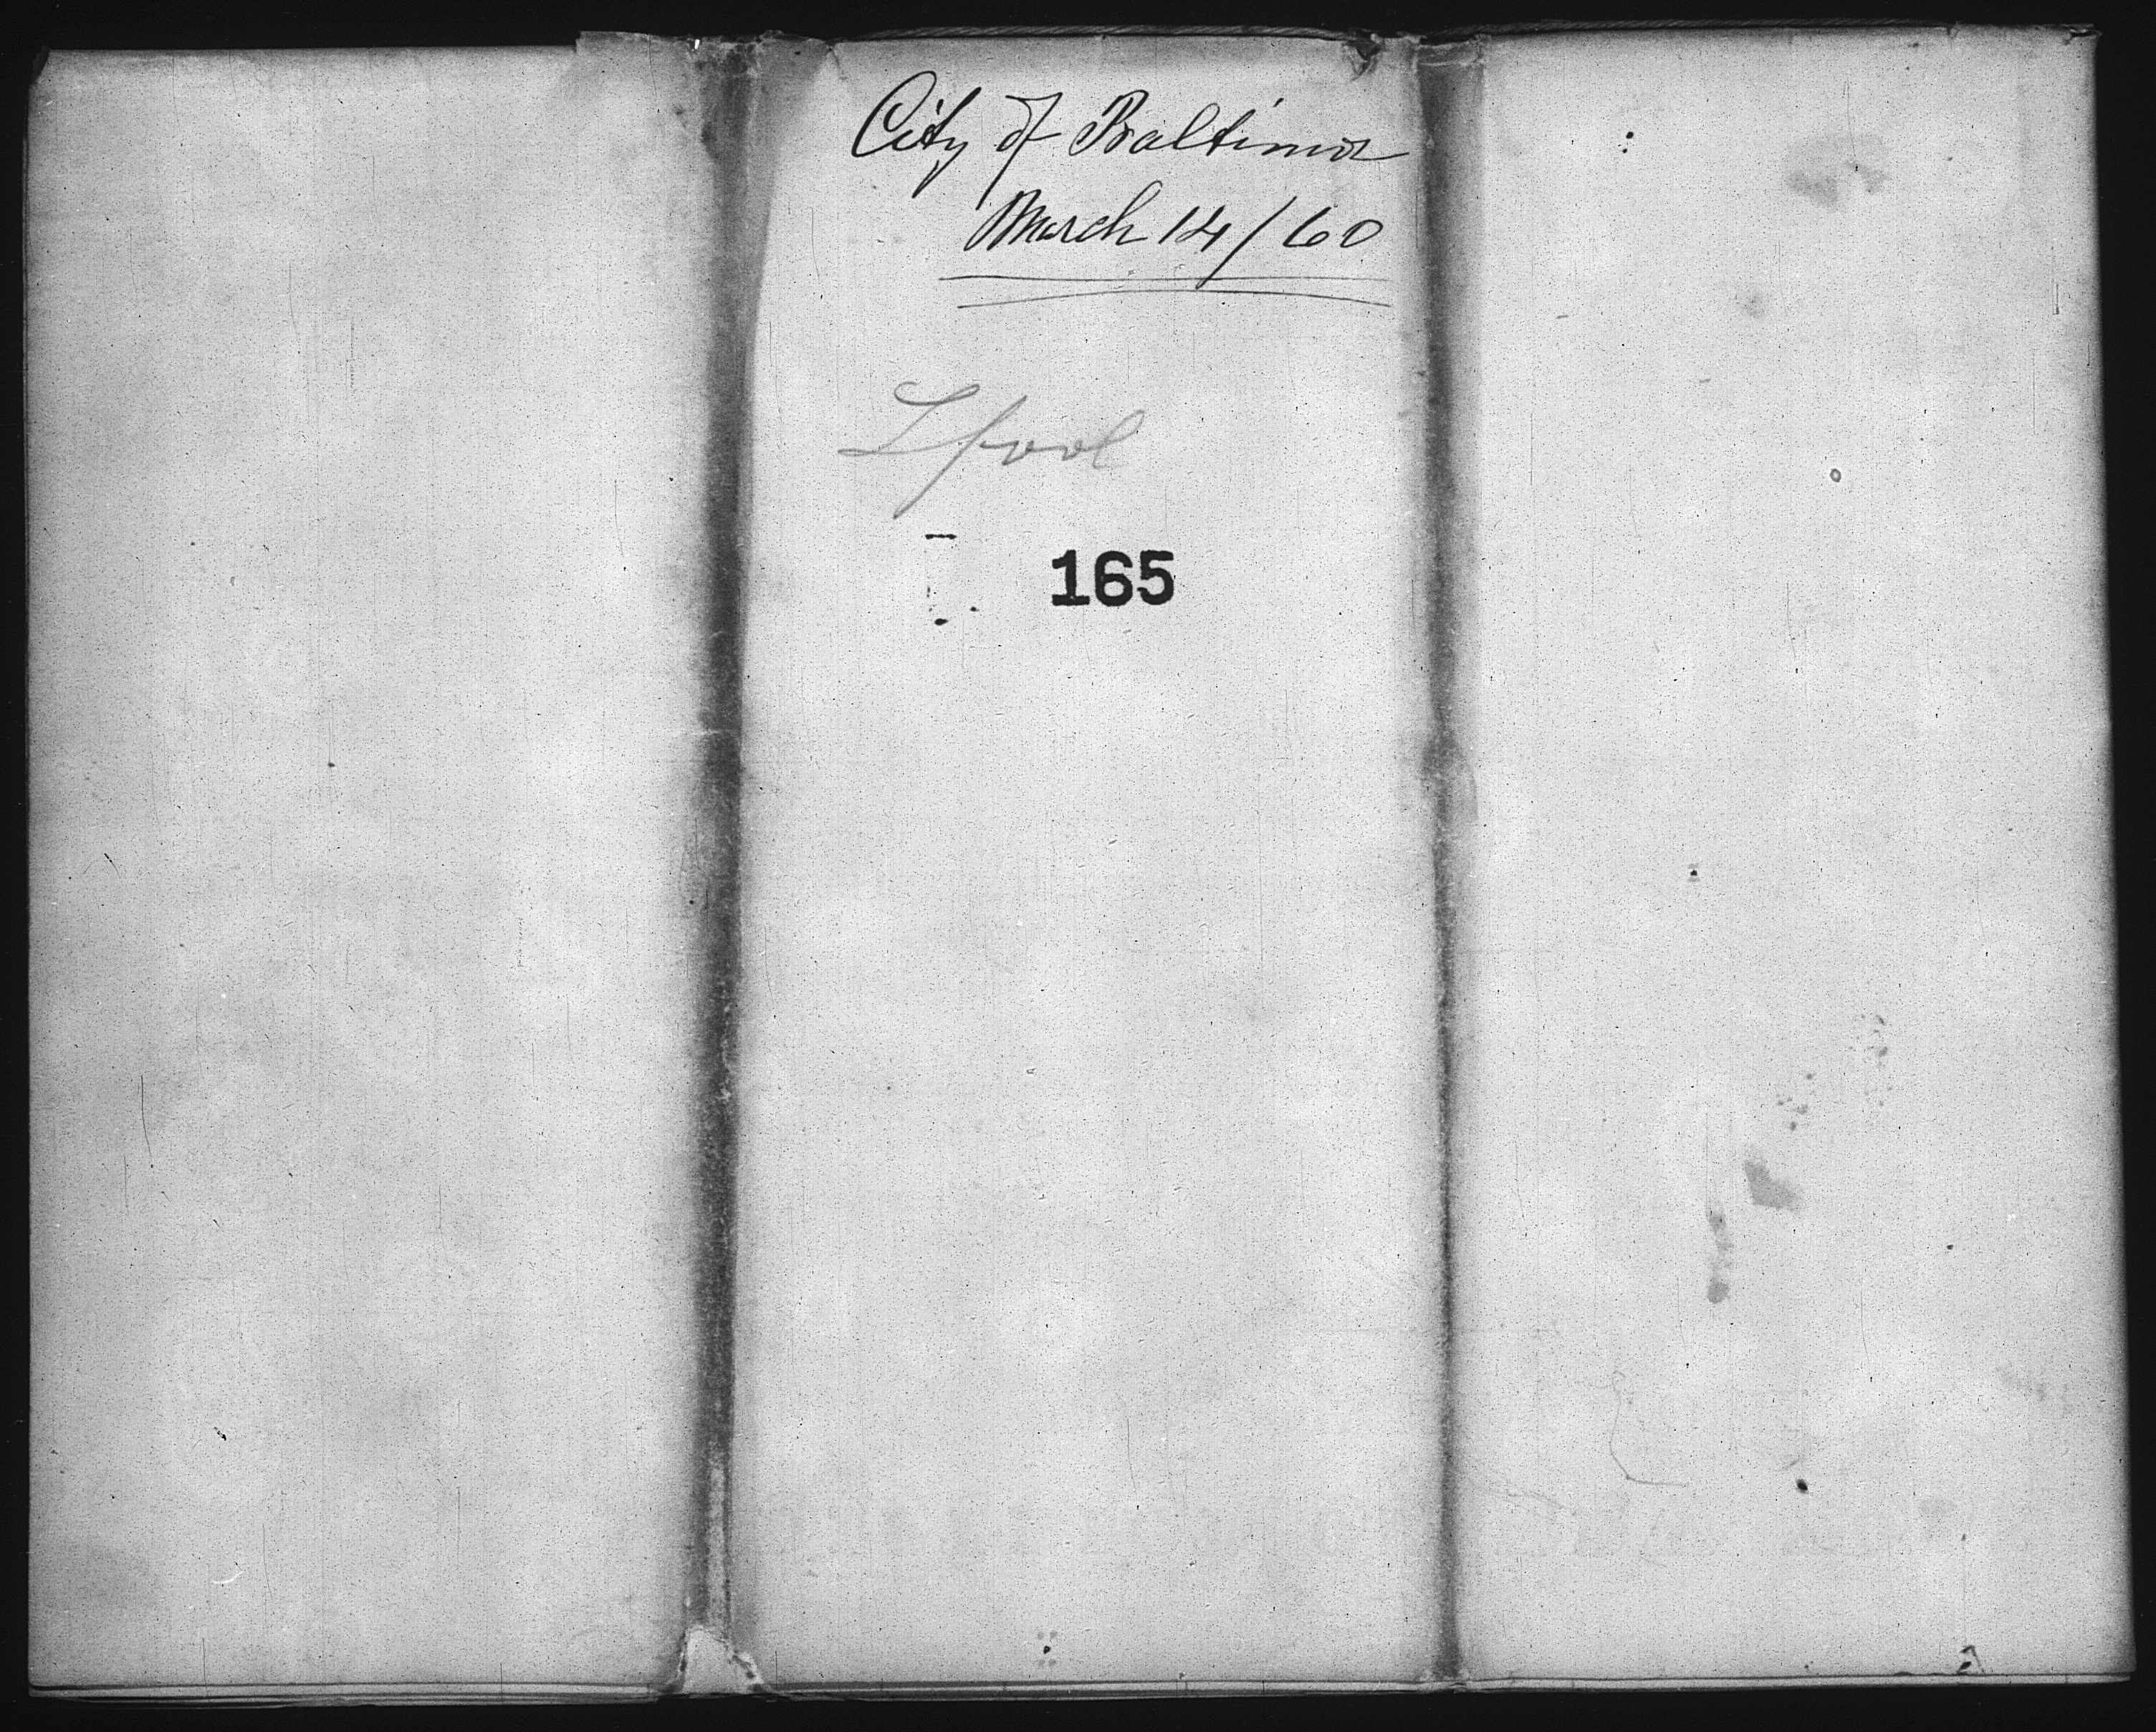 City of Baltimore
March 14/60
Lpool
165